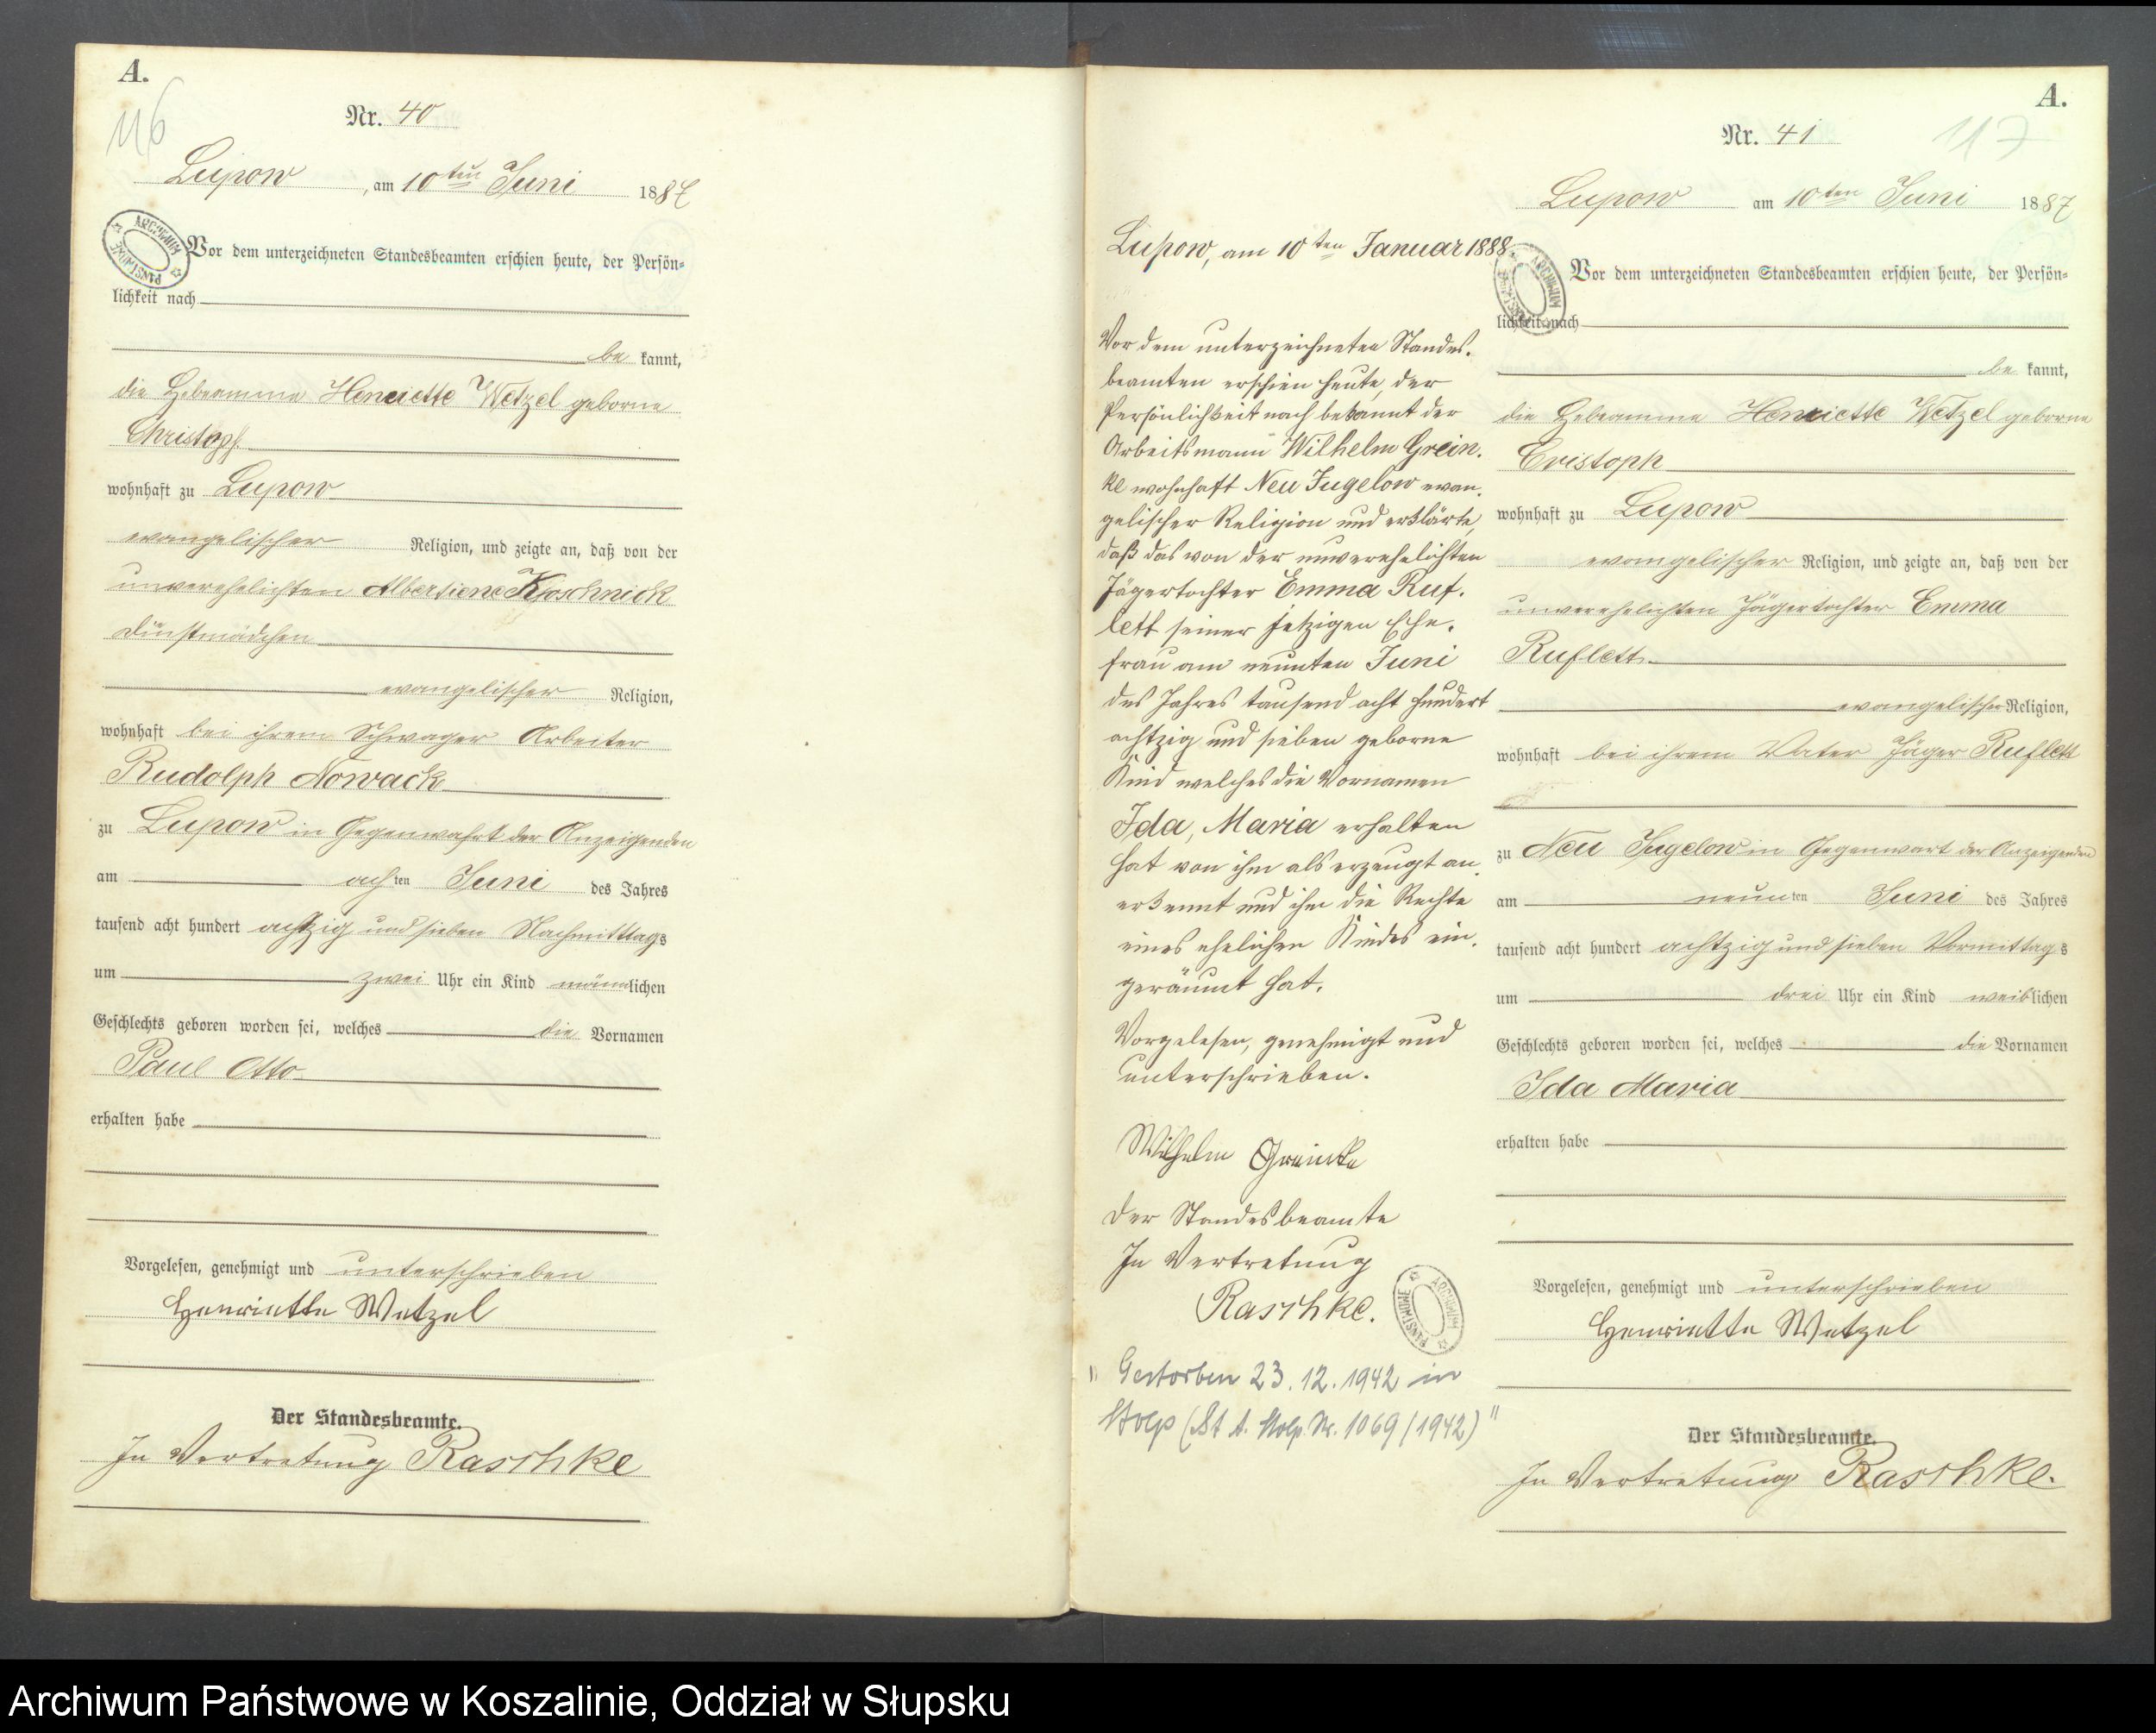 A.
116
Nr. 40
Lupow, am 10ten Juni 1887
ARCHIWUM PAŃSTWOWE
Vor dem unterzeichneten Standesbeamten erschien heute, der Persön-
lichkeit nach
be kannt,
die Hebeamme Henriette Wetzel geborne
Christoph
wohnhaft zu Lupow
evangelischer Religion, und zeigte an, daß von der
unverehelichten Albertiene Kjoschnick
Dienstmädchen
evangelischer Religion,
wohnhaft bei ihrem Schwager Arbeiter
Rudolph Nowack
zu Lupow in Gegenwahrt der Anzeigenden
am achten Juni des Jahres
tausend acht hundert achtzig und sieben Nachmittags
um zwei Uhr ein Kind männlichen
Geschlechts geboren worden sei, welches die Vornamen
Paul Otto
erhalten habe
Vorgelesen, genehmigt und unterschrieben
Henriette Wetzel
Der Standesbeamte.
In Vertretung Raschke
Lupow, am 10ten Januar 1888.
Vor dem unterzeichneten Standes-
beamten erschien heute, der
Persönlichkeit nach bekannt der
Arbeitsmann Wilhelm Grein-
ke wohnhaft Neu Jugelow evan-
gelischer Religion und erklärte,
daß das von der unverehelichten
Jägertochter Emma Ruf-
lett seiner jetzigen Ehe-
frau am neunten Juni
des Jahres tausend acht hundert
achtzig und sieben geborne
Kind welches die Vornamen
Ida, Maria erhalten
hat von ihm als erzeugt an-
erkennt und ihm die Rechte
eines ehelichen Kindes ein-
geräumt hat.
Vorgelesen, genehmigt und
unterschrieben.
Wilhelm Greincke
Der Standesbeamte
In Vertretung
Raschke.
ARCHIWUM PAŃSTWOWE
" Gestorben 23.12.1942 in
Stolp (St A. Stolp Nr. 1069/1942) "
A.
117
Nr. 41
Lupow am 10ten Juni 1887
ARCHIWUM PAŃSTWOWE
Vor dem unterzeichneten Standesbeamten erschien heute, der Persön-
lichkeit nach
be kannt,
die Hebeamme Henriette Wetzel geborne
Cristoph
wohnhaft zu Lupow
evangelischer Religion, und zeigte an, daß von der
unverehelichten Jägertochter Emma
Ruflett
evangelischer Religion,
wohnhaft bei ihrem Vater Jäger Ruflett
zu Neu Jugelow in Gegenwart der Anzeigenden
am neunten Juni des Jahres
tausend acht hundert achtzig und sieben Vormittags
um drei Uhr ein Kind weiblichen
Geschlechts geboren worden sei, welches die Vornamen
Ida Maria
erhalten habe
Vorgelesen, genehmigt und unterschrieben
Henriette Wetzel
Der Standesbeamte.
In Vertretung Raschke.
Archiwum Państwowe w Koszalinie, Oddział w Słupsku